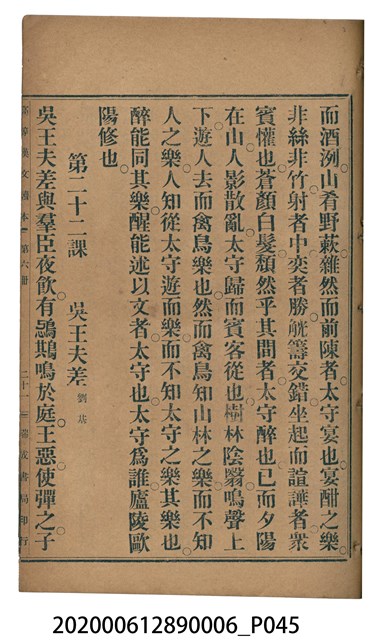 而酒洌山肴野蔌雜然而前陳者太守宴也宴酣之樂
非絲非竹射者中奕者勝觥籌交錯坐起而諠譁者衆
賓懽也蒼顏白髮頹然乎其間者太守醉也已而夕陽
在山人影散亂太守歸而賓客從也樹林陰翳鳴聲上
下遊人去而禽鳥樂也然而禽鳥知山林之樂而不知
人之樂人知從太守遊而樂而不知太守之樂其樂也
醉能同其樂醒能述以文者太守也太守爲誰廬陵歐
陽修也
第二十二課 吳王夫差 劉基
吳王夫差與羣臣夜飲有鵩鵙鳴於庭王惡使彈之子
高等漢文讀本 第六册 二十一 蘭成書局印行
202000612890006_P045